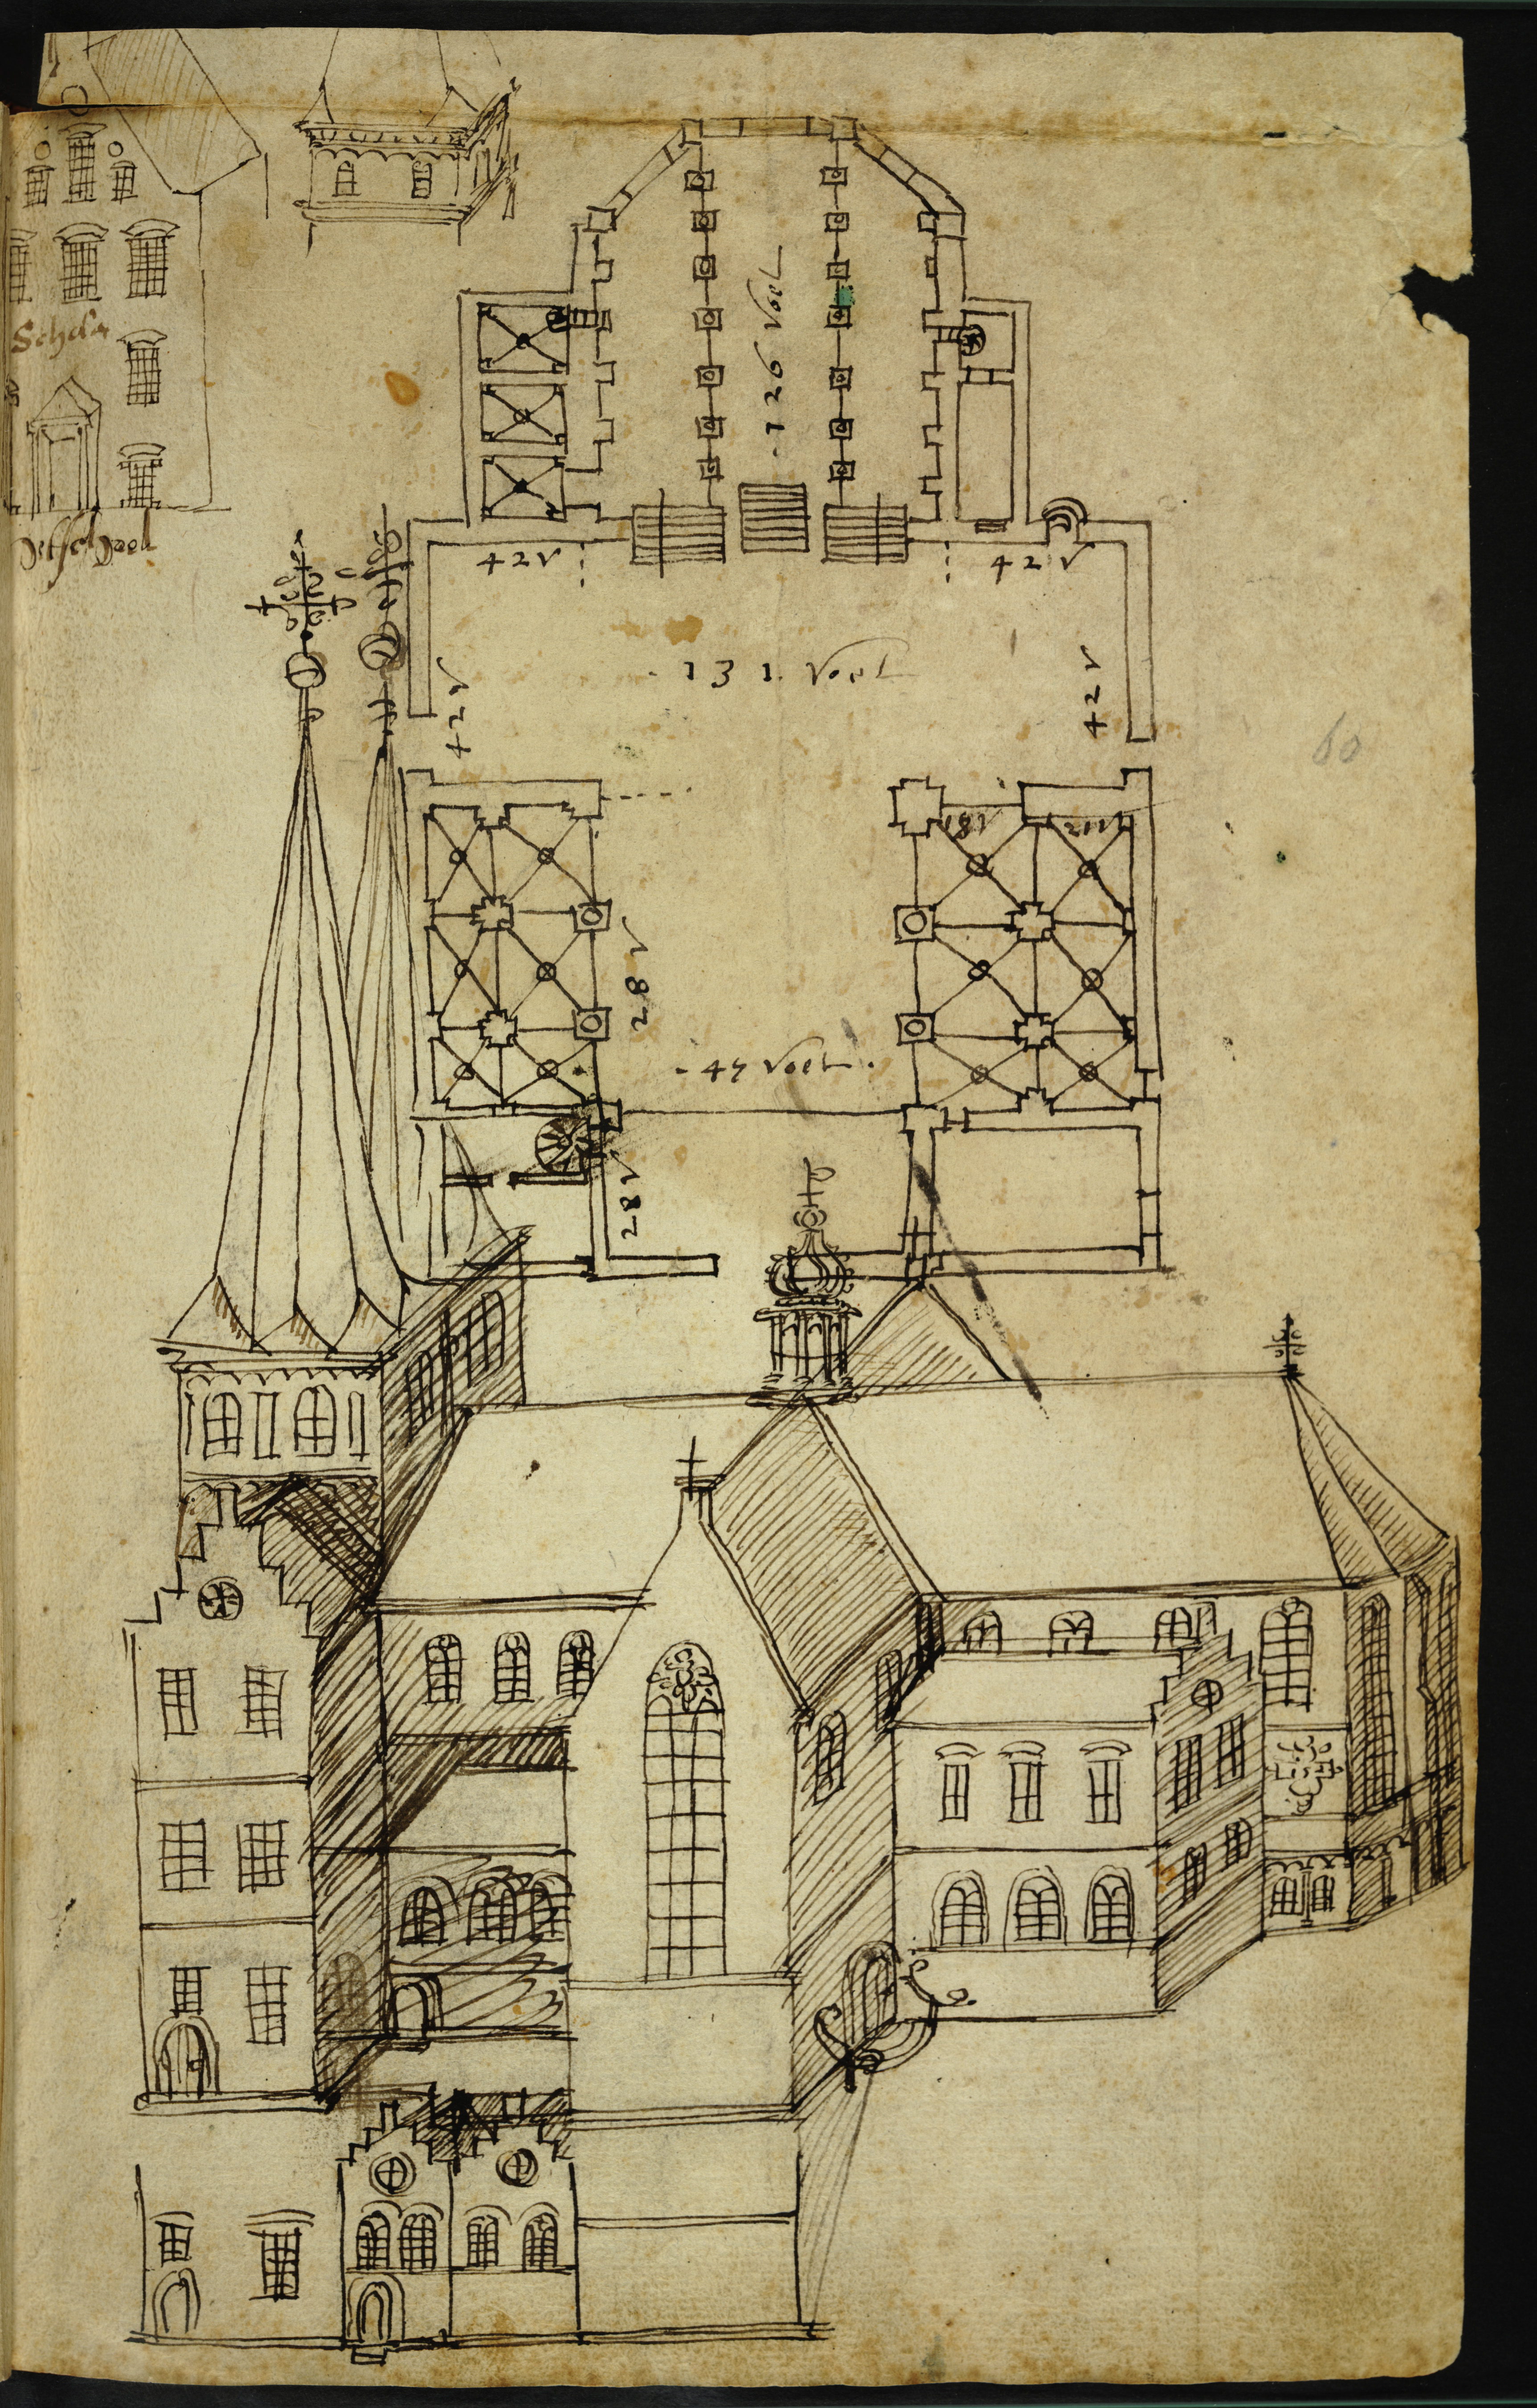 · 126 Voet
42 v
42 v
· 131 · Voet
42 v
42 v
60
18 v
28 v
· 47 Voet ·
28 v